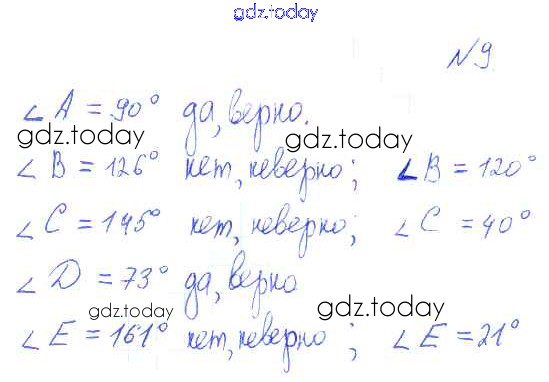 gdz.today
N9
∠A = 90° да, верно.
gdz.today gdz.today
∠B = 126° нет, неверно; ∠B = 120°
∠C = 145° нет, неверно; ∠C = 40°
∠D = 73° да, верно
gdz.today gdz.today
∠E = 161° нет, неверно; ∠E = 21°